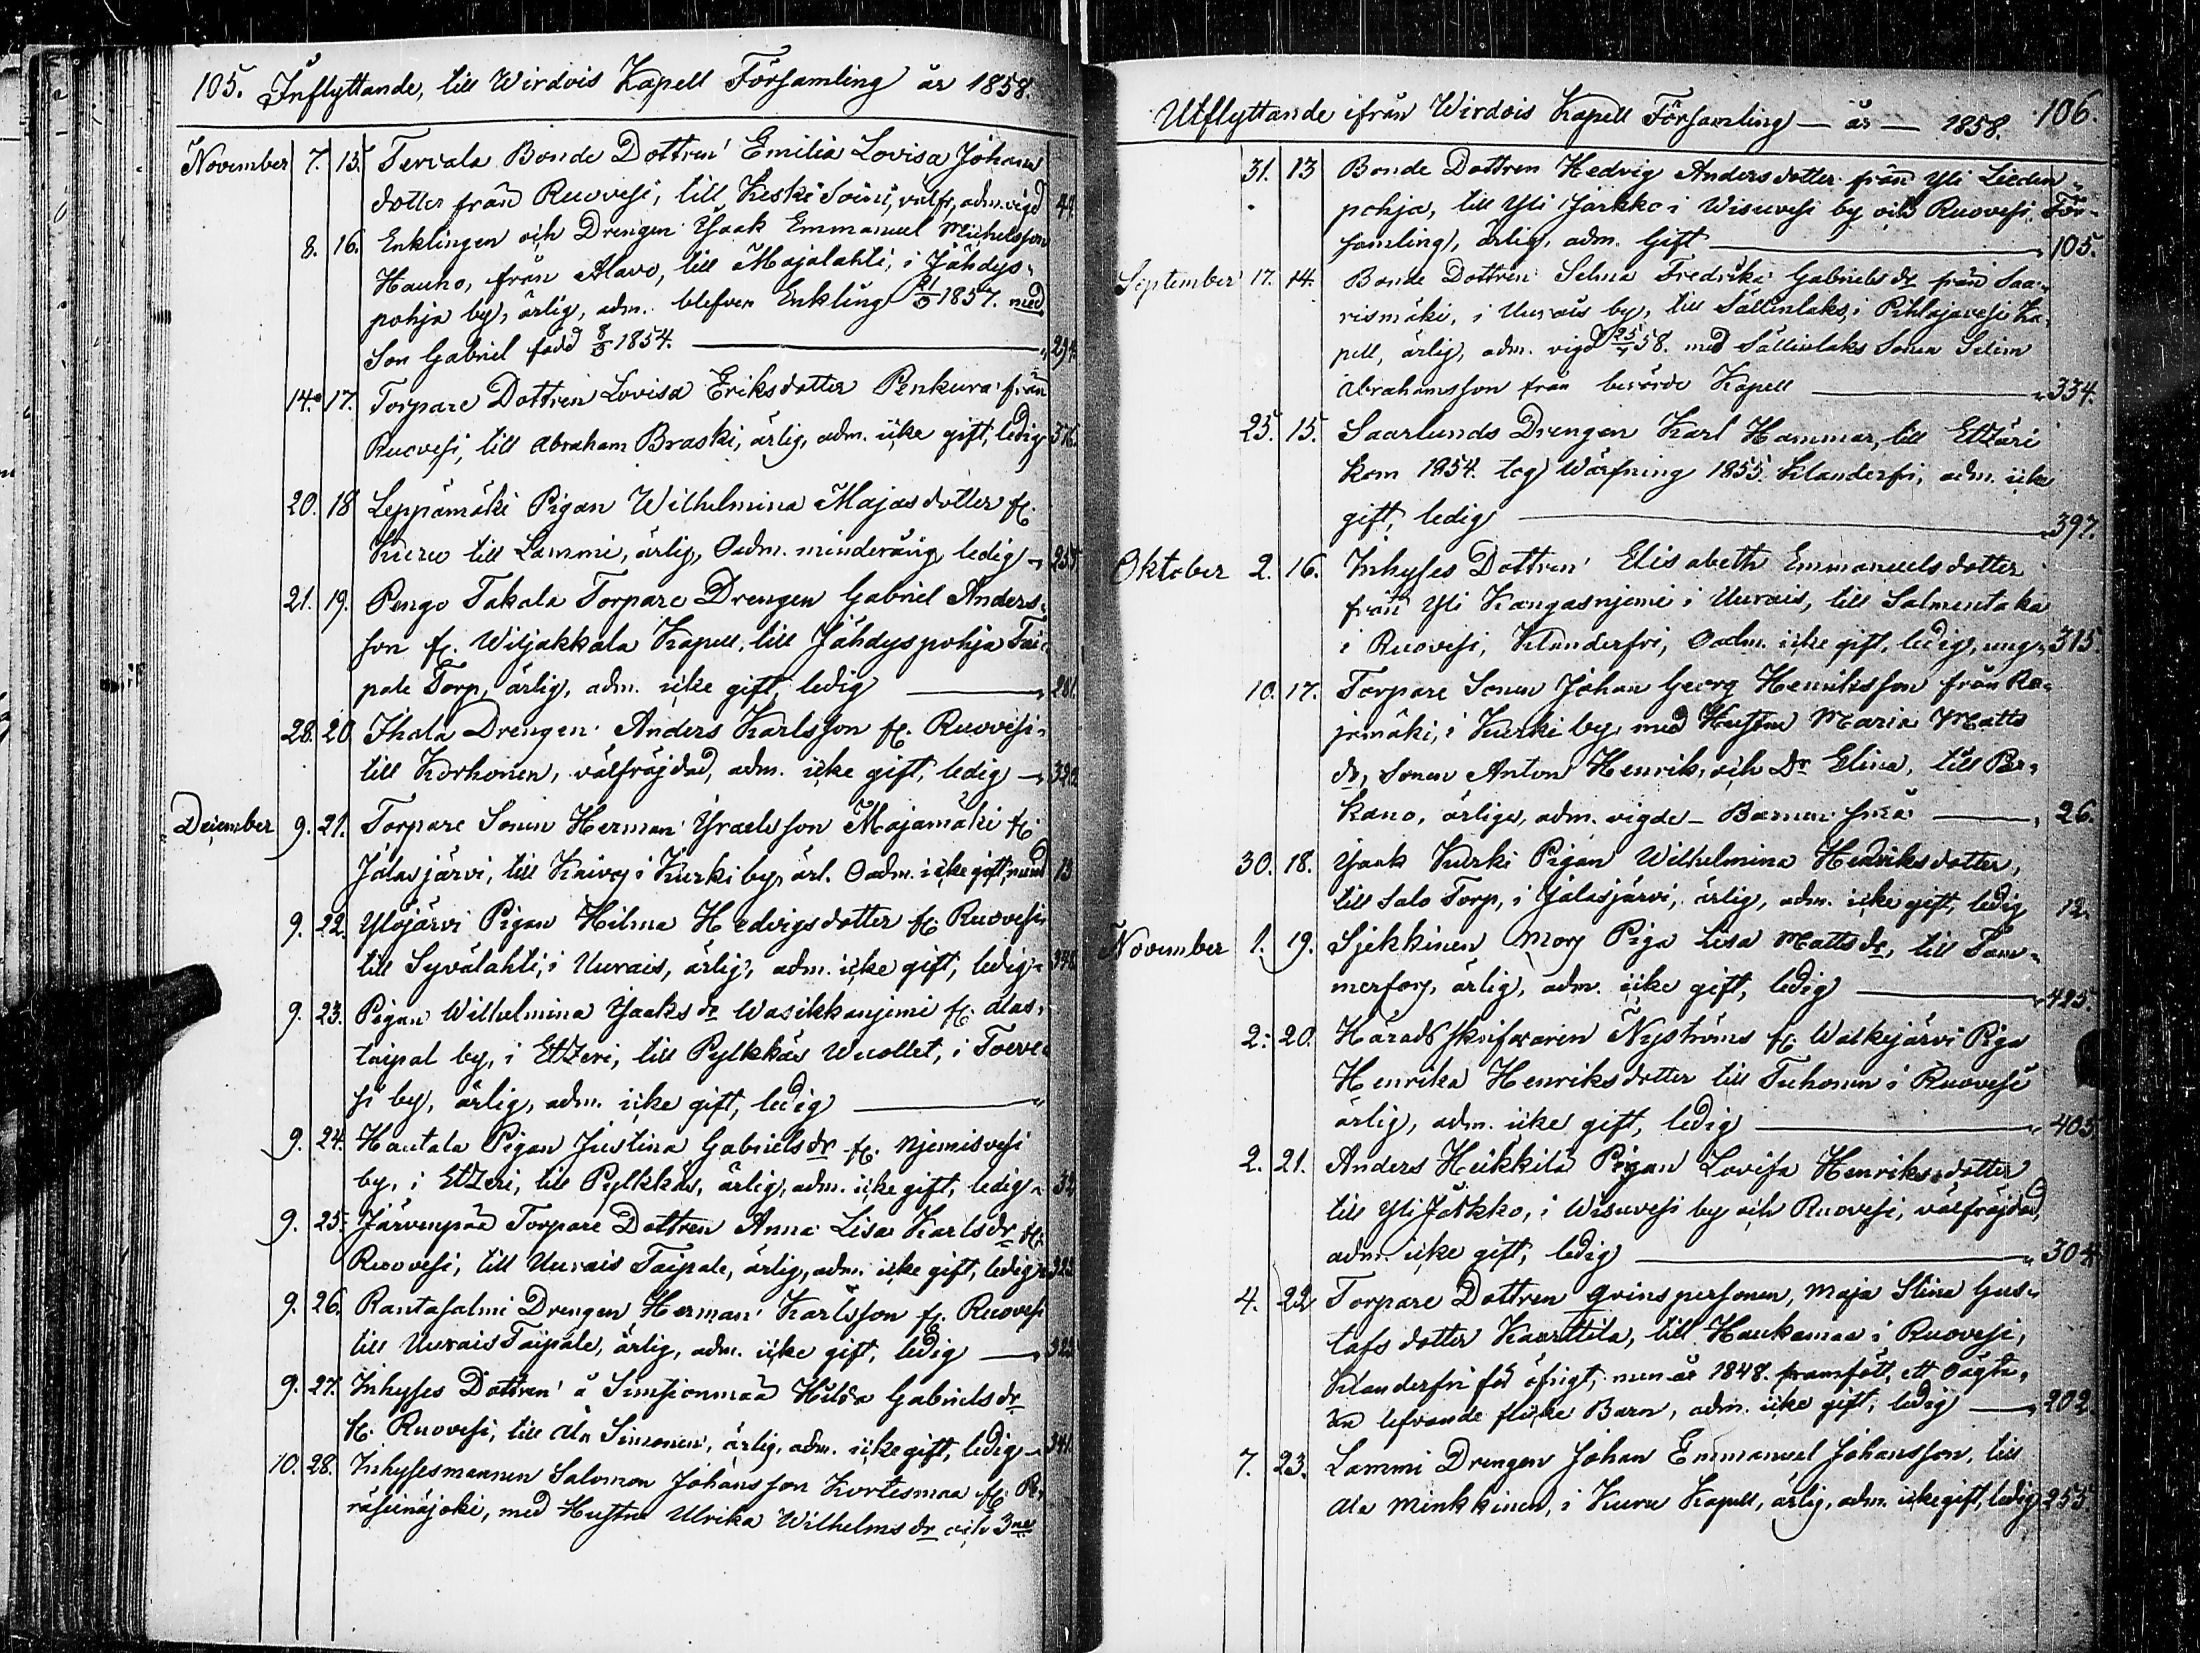 105. Inflyttande, till Wirdois Kapell Församling år 1858.
November 7. 15. Tervala Bonde Dottren Emilia Lovisa Johans
dotter från Ruovesi, till Keski Soini, välfr, adm. vigd 44.
8. 16. Enklingen och Drengen Isaak Emmanuel Michelsson
Hauho, från Alavo, till Majalahti, i Jähdys-
pohja by, ärlig, adm. blefven Enkling 21/5 1857. med
Son Gabriel född 8/5 1854. 294.
14. 17. Torpare Dottren Lovisa Eriksdotter Penkura från
Ruovesi, till Abraham Braski, ärlig, adm. icke gift, ledig 376.
20. 18 Leppämäki Pigan Wilhelmina Majasdotter fr.
Kuru till Lammi, ärlig, Oadm. minderårig ledig 255.
21. 19. Pengo Takala Torpare Drengen Gabriel Anders-
son fr. Wiljakkala Kapell, till Jähdyspohja Tai-
pale Torp, ärlig, adm. icke gift, ledig 281.
28. 20 Ihala Drengen Anders Karlsson fr. Ruovesi
till Korhonen, välfräjdad, adm. icke gift, ledig
December 9. 21. Torpare Sonen Herman Israelsson Majamäki fr.
Jalasjärvi, till Kaivos i Kurki by, ärl. Oadm. icke gift, 13
9. 22. Ylöjärvi Pigan Hilma Hedvigsdotter fr. Ruovesi
till Syvälahti, i Uurais, ärlig, adm. icke gift, ledig 348
9. 23. Pigan Wilhelmina Isaaksdr Wasikkanjemi fr. Alas-
taipal by, i Etzeri, till Pylkkäs Wuollet, i Toeve-
si by, ärlig, adm. icke gift, ledig "
9. 24. Hautala Pigan Justina Gabrielsdr fr. Njemisvesi
by, i Etzeri, till Pylkkäs, ärlig, adm. icke gift, ledig 32
9. 25. Järvenpää Torpare Dottren Anna Lisa Karlsdr fr.
Ruovesi, till Uurais Taipale, ärlig, adm. icke gift, ledig 323
9. 26. Rantasalmi Drengen Herman Karlsson fr. Ruovesi
till Uurais Taipale, ärlig, adm. icke gift, ledig 323
9. 27. Inhyses Dottren å Simsionmaa Hilda Gabrielsdr
fr. Ruovesi, till Ala Simonen, ärlig, adm. icke gift, ledig 341.
10. 28. Inhysesmannen Salomon Johansson Kortesmaa fr. Pe-
räseinäjoki, med Hustru Ulrika Wilhelmsdr och 3ne
Utflyttande ifrån Wirdois Kapell Församling — år — 1858. 106.
31. 13 Bonde Dottren Hedvig Andersdotter från Yli Lieden-
pohja, till Yli Jarkko i Wisuvesi by och Ruovesi För-
samling, ärlig, adm. Gift 105.
September 17. 14. Bonde Dottren Selma Fredrika Gabrielsdr från Saa-
rismäki, i Uurais by, till Sällinlaks, i Pihlajavesi Ka-
pell, ärlig, adm. vigd 25/4 58. med Sällinlaks Sonen Selim
Abrahamsson från berörde Kapell 334.
25. 15. Saarlunds Drengen Karl Hammar, till Etzäri
kom 1854. tog Wärfning 1855. Klanderfri, adm. icke
gift, ledig 397.
Oktober 2. 16. Inhyses Dottren Elisabeth Emmanuelsdotter
från Yli Kangasnjemi i Uurais, till Salmentaka
i Ruovesi, Klanderfri, Oadm. icke gift, ledig, ung 315.
10. 17. Torpare Sonen Johan Georg Henriksson från Ra-
jamäki, i Kurki by, med Hustru Maria Matts
dr, Sonen Anton Henrik, och Dr Elina, till Par-
kano, ärliga, adm. vigde — Barnen små 26.
30. 18. Isaak Kurki Pigan Wilhelmina Hedviksdotter,
till Salo Torp, i Jalasjärvi, ärlig, adm. icke gift, ledig 12.
November 1. 19. Sjekkinen Mory Piga Lisa Mattsdr, till Tam-
merfors, ärlig, adm. icke gift, ledig 425.
2. 20. Häradsskrifvaren Nyströms fr. Walkejärvi Piga
Henrika Henriksdotter till Tuhonen i Ruovesi
ärlig, adm. icke gift, ledig 405
2. 21. Anders Heikkilä Pigan Lovisa Henriksdotter
till Yli Jarkko, i Wisuvesi by och Ruovesi, välfräjdad,
adm. icke gift, ledig 304
4. 22 Torpare Dottren Qvinspersonen, Maja Stina Gus-
tafsdotter Kaarttila, till Haukamaa i Ruovesi,
Klanderfri för öfrigt, men år 1848. framfött, ett oägta,
än lefvande flicke Barn, adm. icke gift, ledig 202.
7. 23. Lammi Drengen Johan Emmanuel Johansson, till
Ala Minkkinen, i Kuru Kapell, ärlig, adm. icke gift, ledig 255.